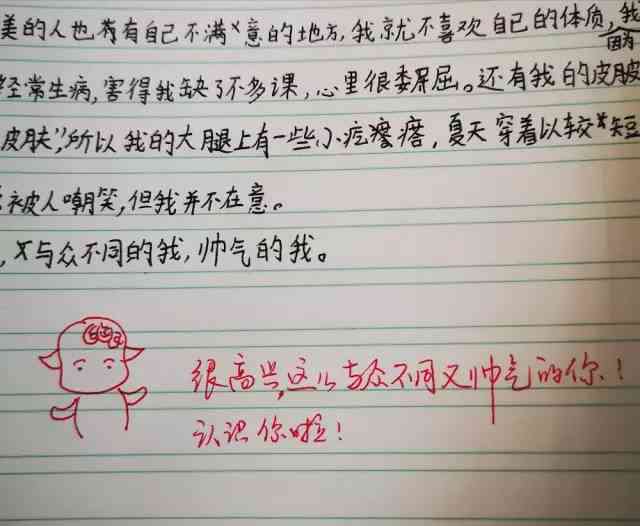 美的人也有自己不满意的地方,我就不喜欢自己的体质,我
因为
经常生病,害得我缺了不多课,心里很委屈。还有我的皮肤
皮肤",所以我的大腿上有一些小疙瘩瘩,夏天穿着以较短
被人嘲笑,但我并不在意。
,又与众不同的我,帅气的我。
很高兴,这么与众不同又帅气的你!
认识你啦!